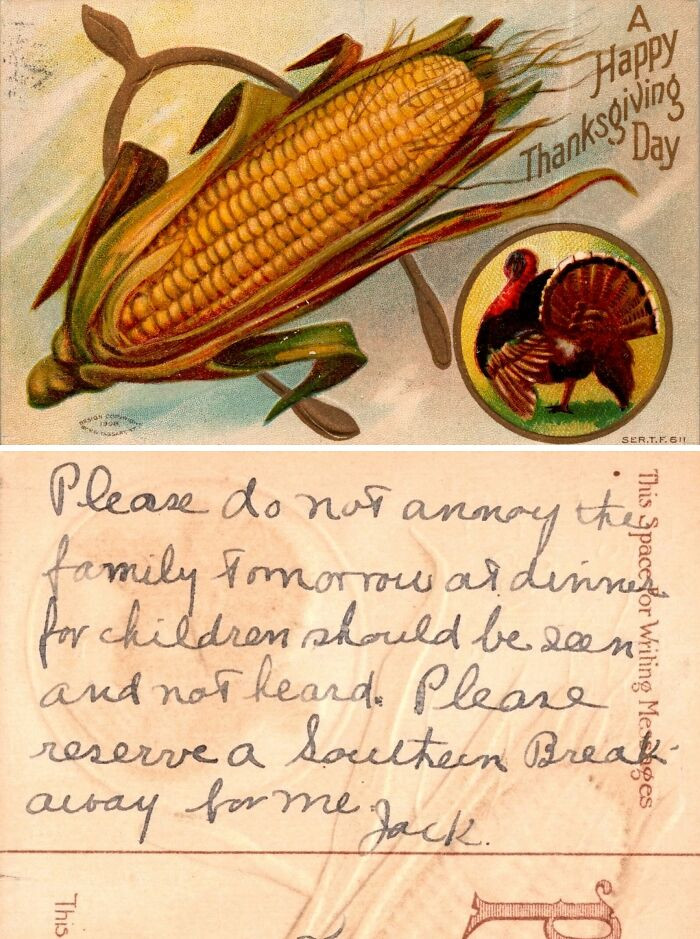 A
Happy
Thanksgiving
Day
DESIGN COPYRIGHT
1908
SER.T.F. 611
Please do not annoy the
family tomorrow at dinner
for children should be seen
and not heard. Please
reserve a Southern Break-
away for me.
Jack.
This Space For Writing Messages
This
P